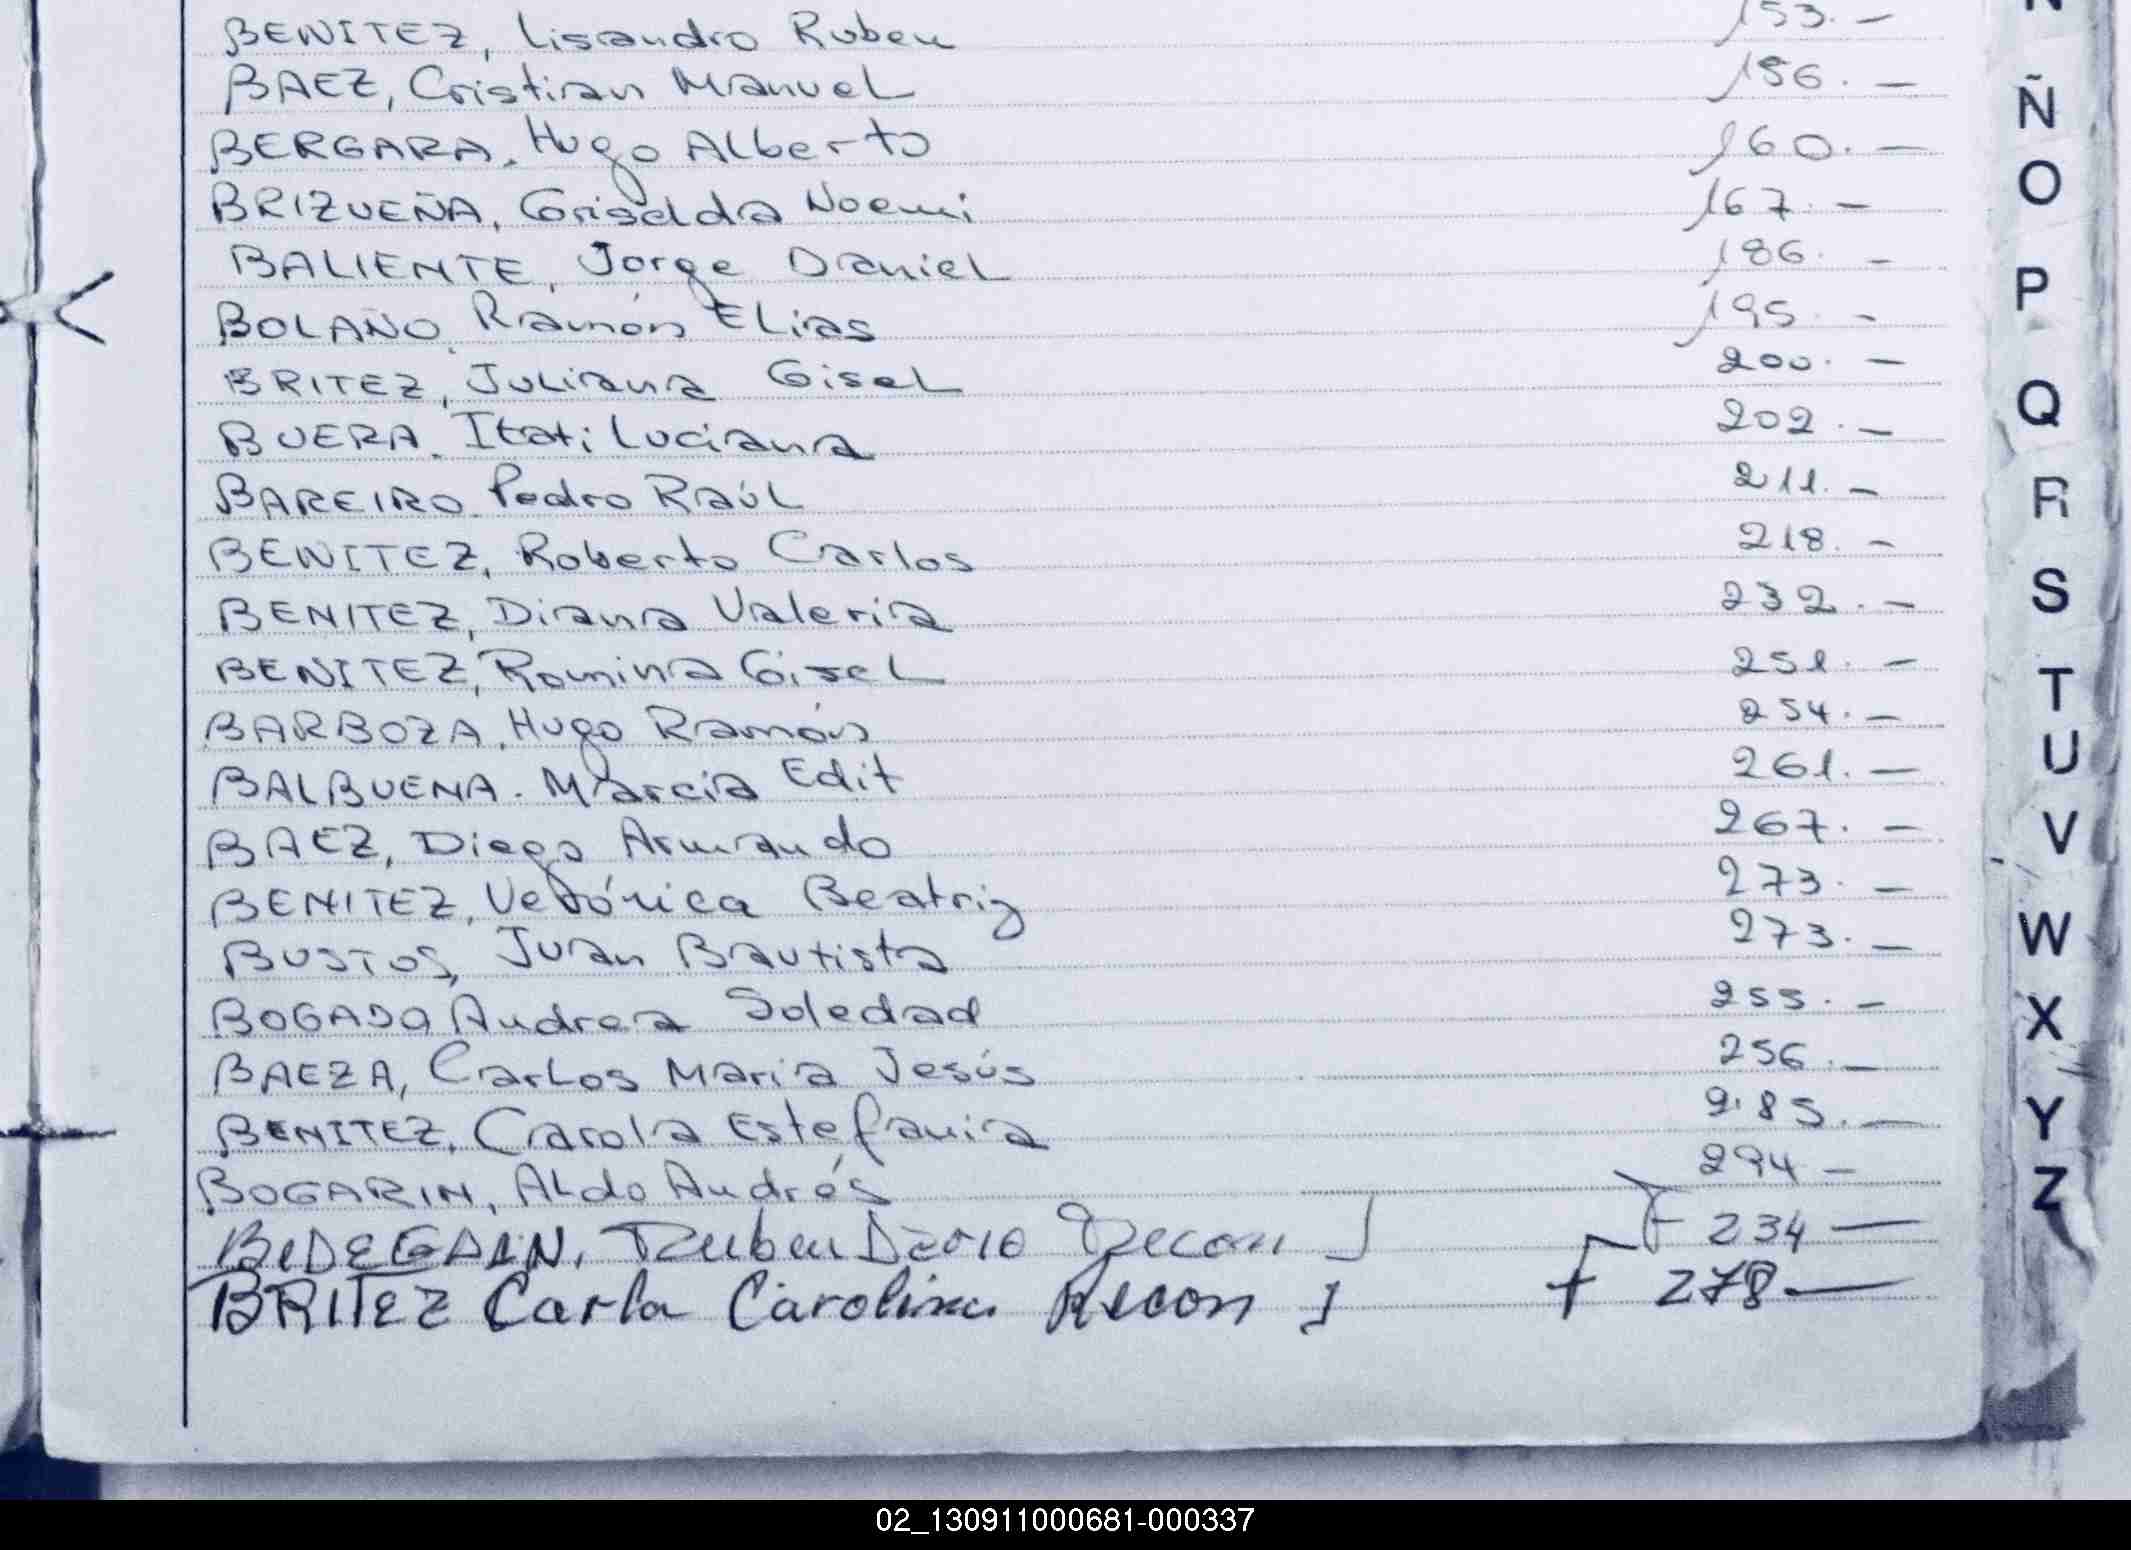 BENITEZ, Lisandro Ruben 153. —
BAEZ, Cristian Manuel 156. —
BERGARA, Hugo Alberto 160. —
BRIZUEÑA, Griselda Noemi 167. —
BALIENTE, Jorge Daniel 186. —
BOLAÑO, Ramón Elias 195. —
BRITEZ, Juliana Gisel 200. —
BUERA, Itati Luciana 202. —
BAREIRO, Pedro Raúl 211. —
BENITEZ, Roberto Carlos 218. —
BENITEZ, Diana Valeria 232. —
BENITEZ, Romina Gisel 251. —
BARBOZA, Hugo Ramón 254. —
BALBUENA. Marcia Edit 261. —
BAEZ, Diego Armando 267. —
BENITEZ, Verónica Beatriz 273. —
BUSTOS, Juan Bautista 273. —
BOGADO, Andrea Soledad 255. —
BAEZA, Carlos Maria Jesús 256. —
BENITEZ, Carola Estefania 285. —
BOGARIN, Aldo Andrés 294 —
BIDEGAIN, Ruben Dario Recon J F 234 —
BRITEZ Carla Carolina Recon J F 278 —
N
Ñ
O
P
Q
R
S
T
U
V
W
X
Y
Z
02_130911000681-000337